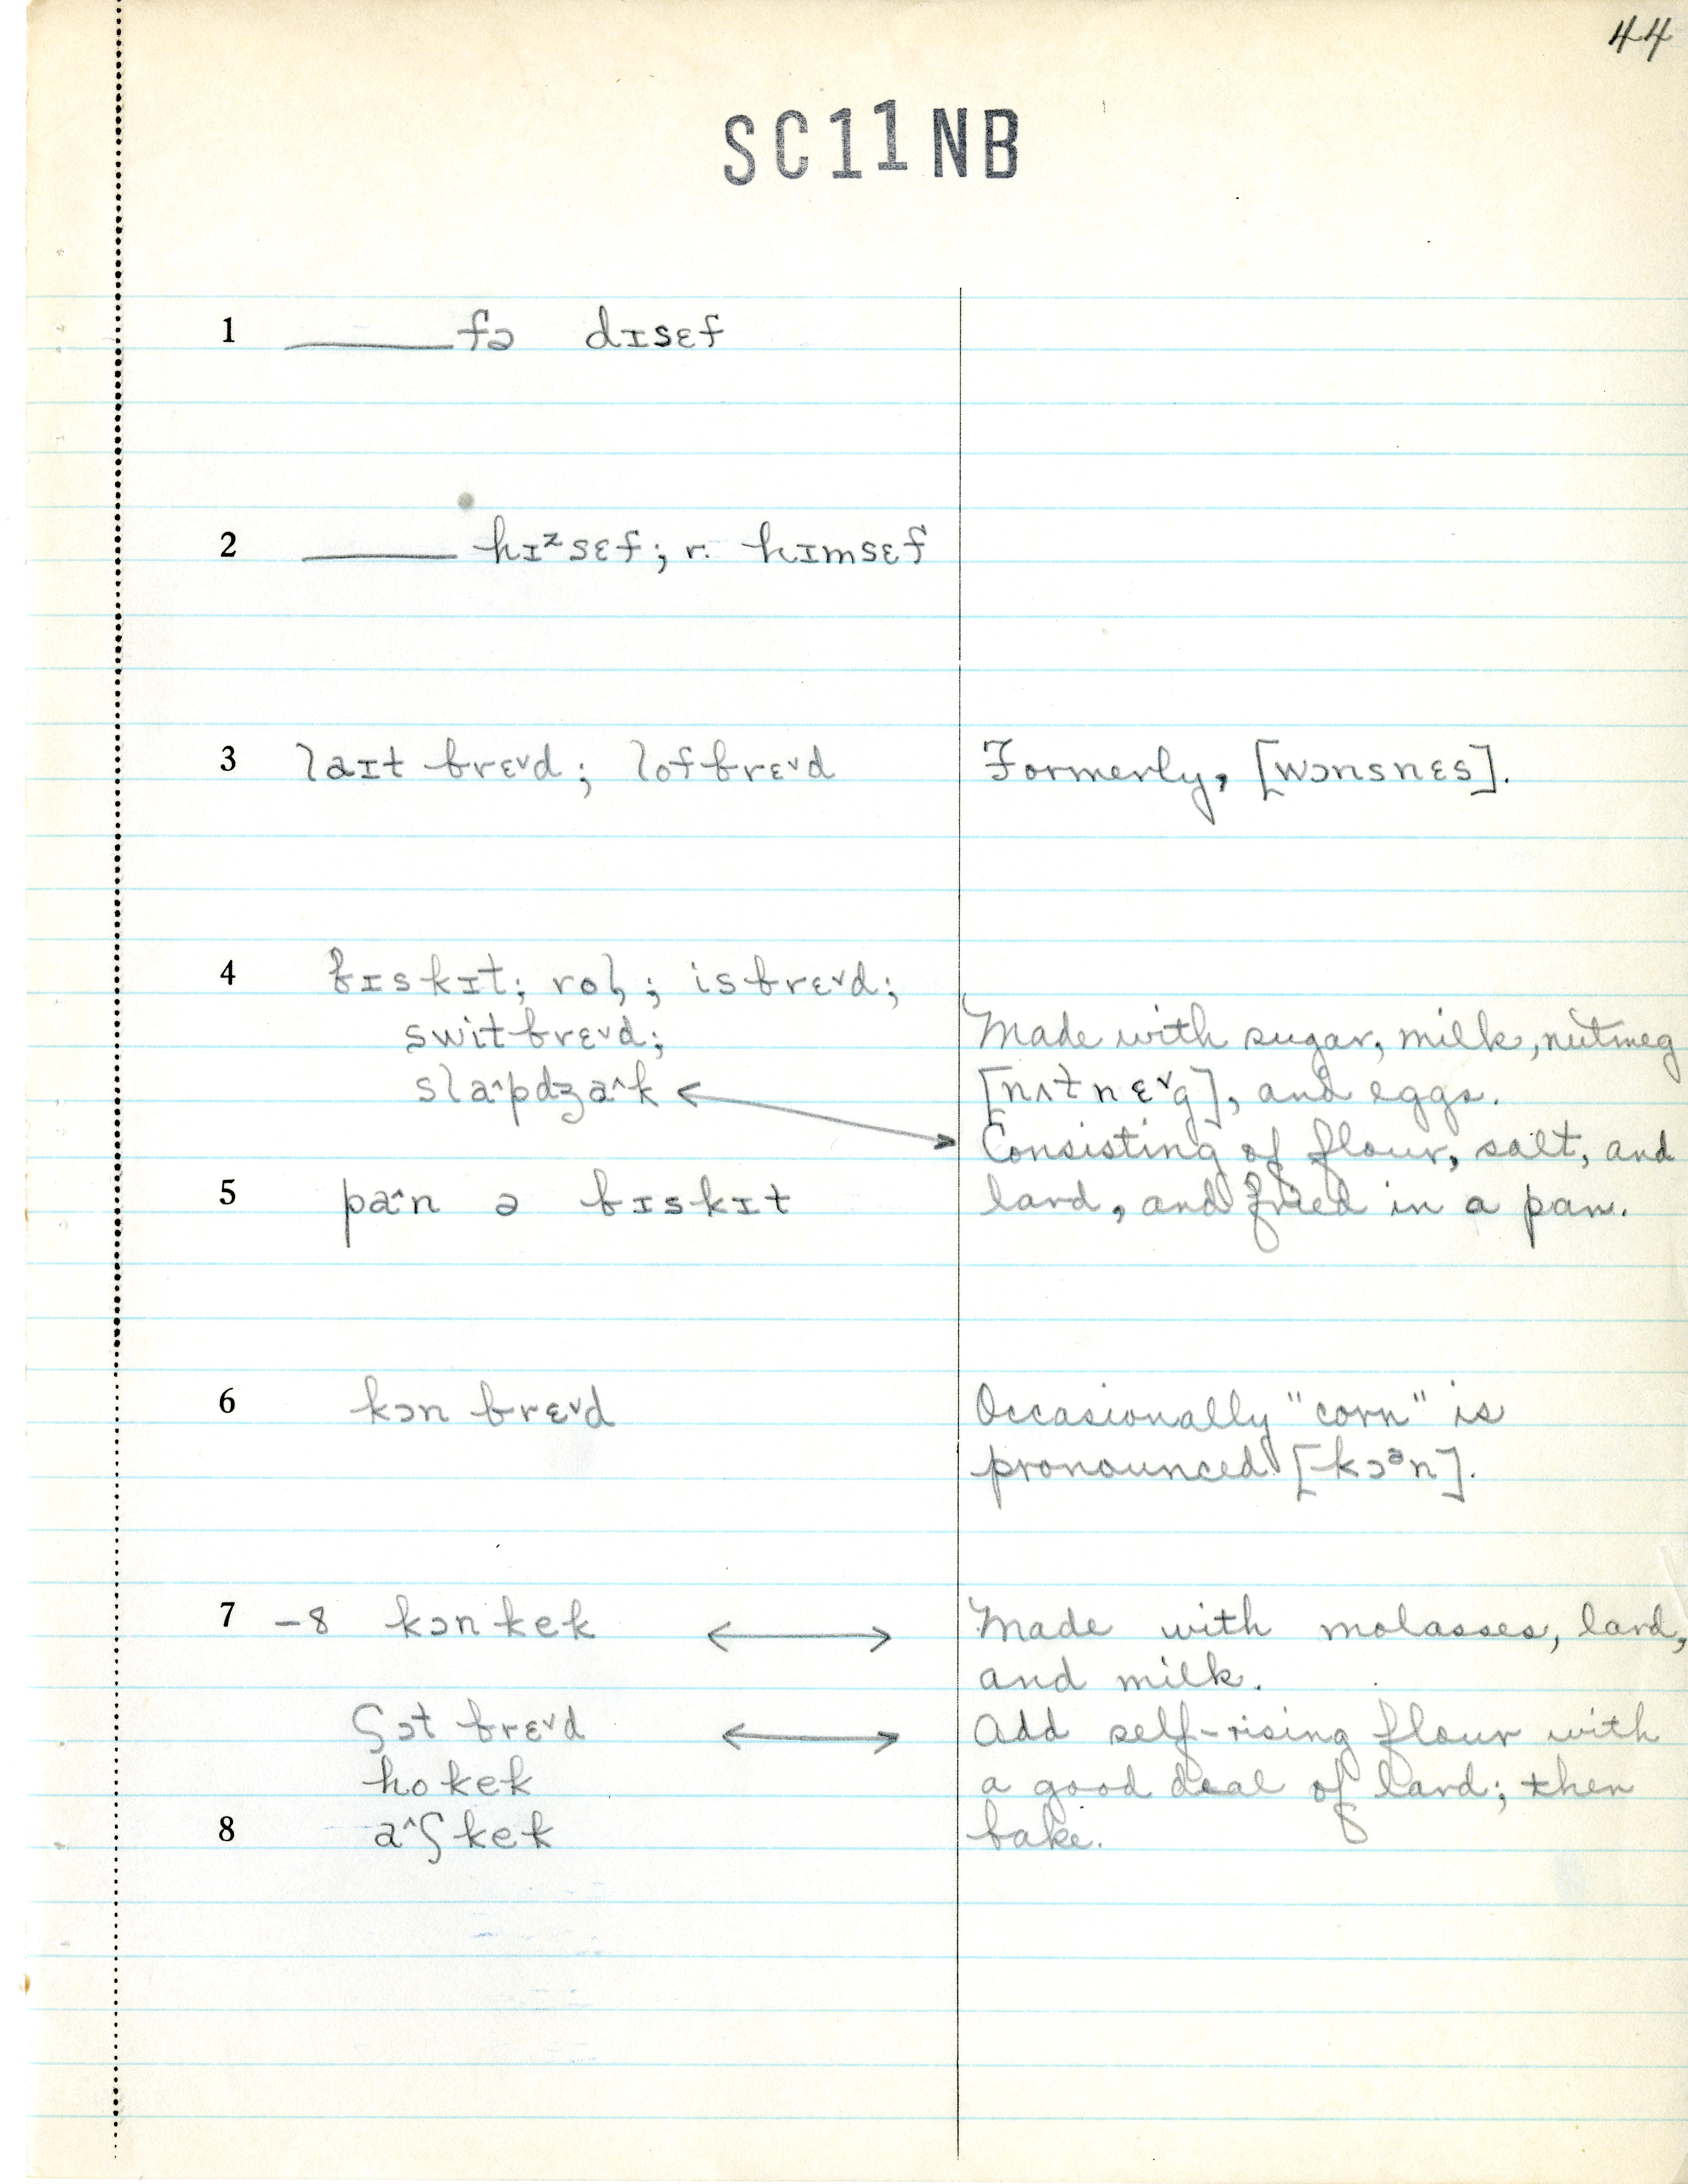 44
SC11NB
1 ______ fə dɪsɛf
2 ______ hɪᶻsɛf; r. hɪmsɛf
3 laɪt brɛ˅d; lofbrɛ˅d Formerly, [wɔnsnɛs].
4 bɪskɪt; rol; isbrɛ˅d;
switbrɛ˅d; Made with sugar, milk, nutmeg
sla˄pdʒa˄k ⟷ [nʌtnɛ˅g], and eggs.
Consisting of flour, salt, and
5 pa˄n ə bɪskɪt lard, and fried in a pan.
6 kɔn brɛ˅d Occasionally "corn" is
pronounced [kɔᵊn].
7 –8 kɔnkek ⟷ Made with molasses, lard,
and milk.
ʃɔt brɛ˅d ⟷ Add self-rising flour with
hokek a good deal of lard; then
8 a˄ʃkek bake.